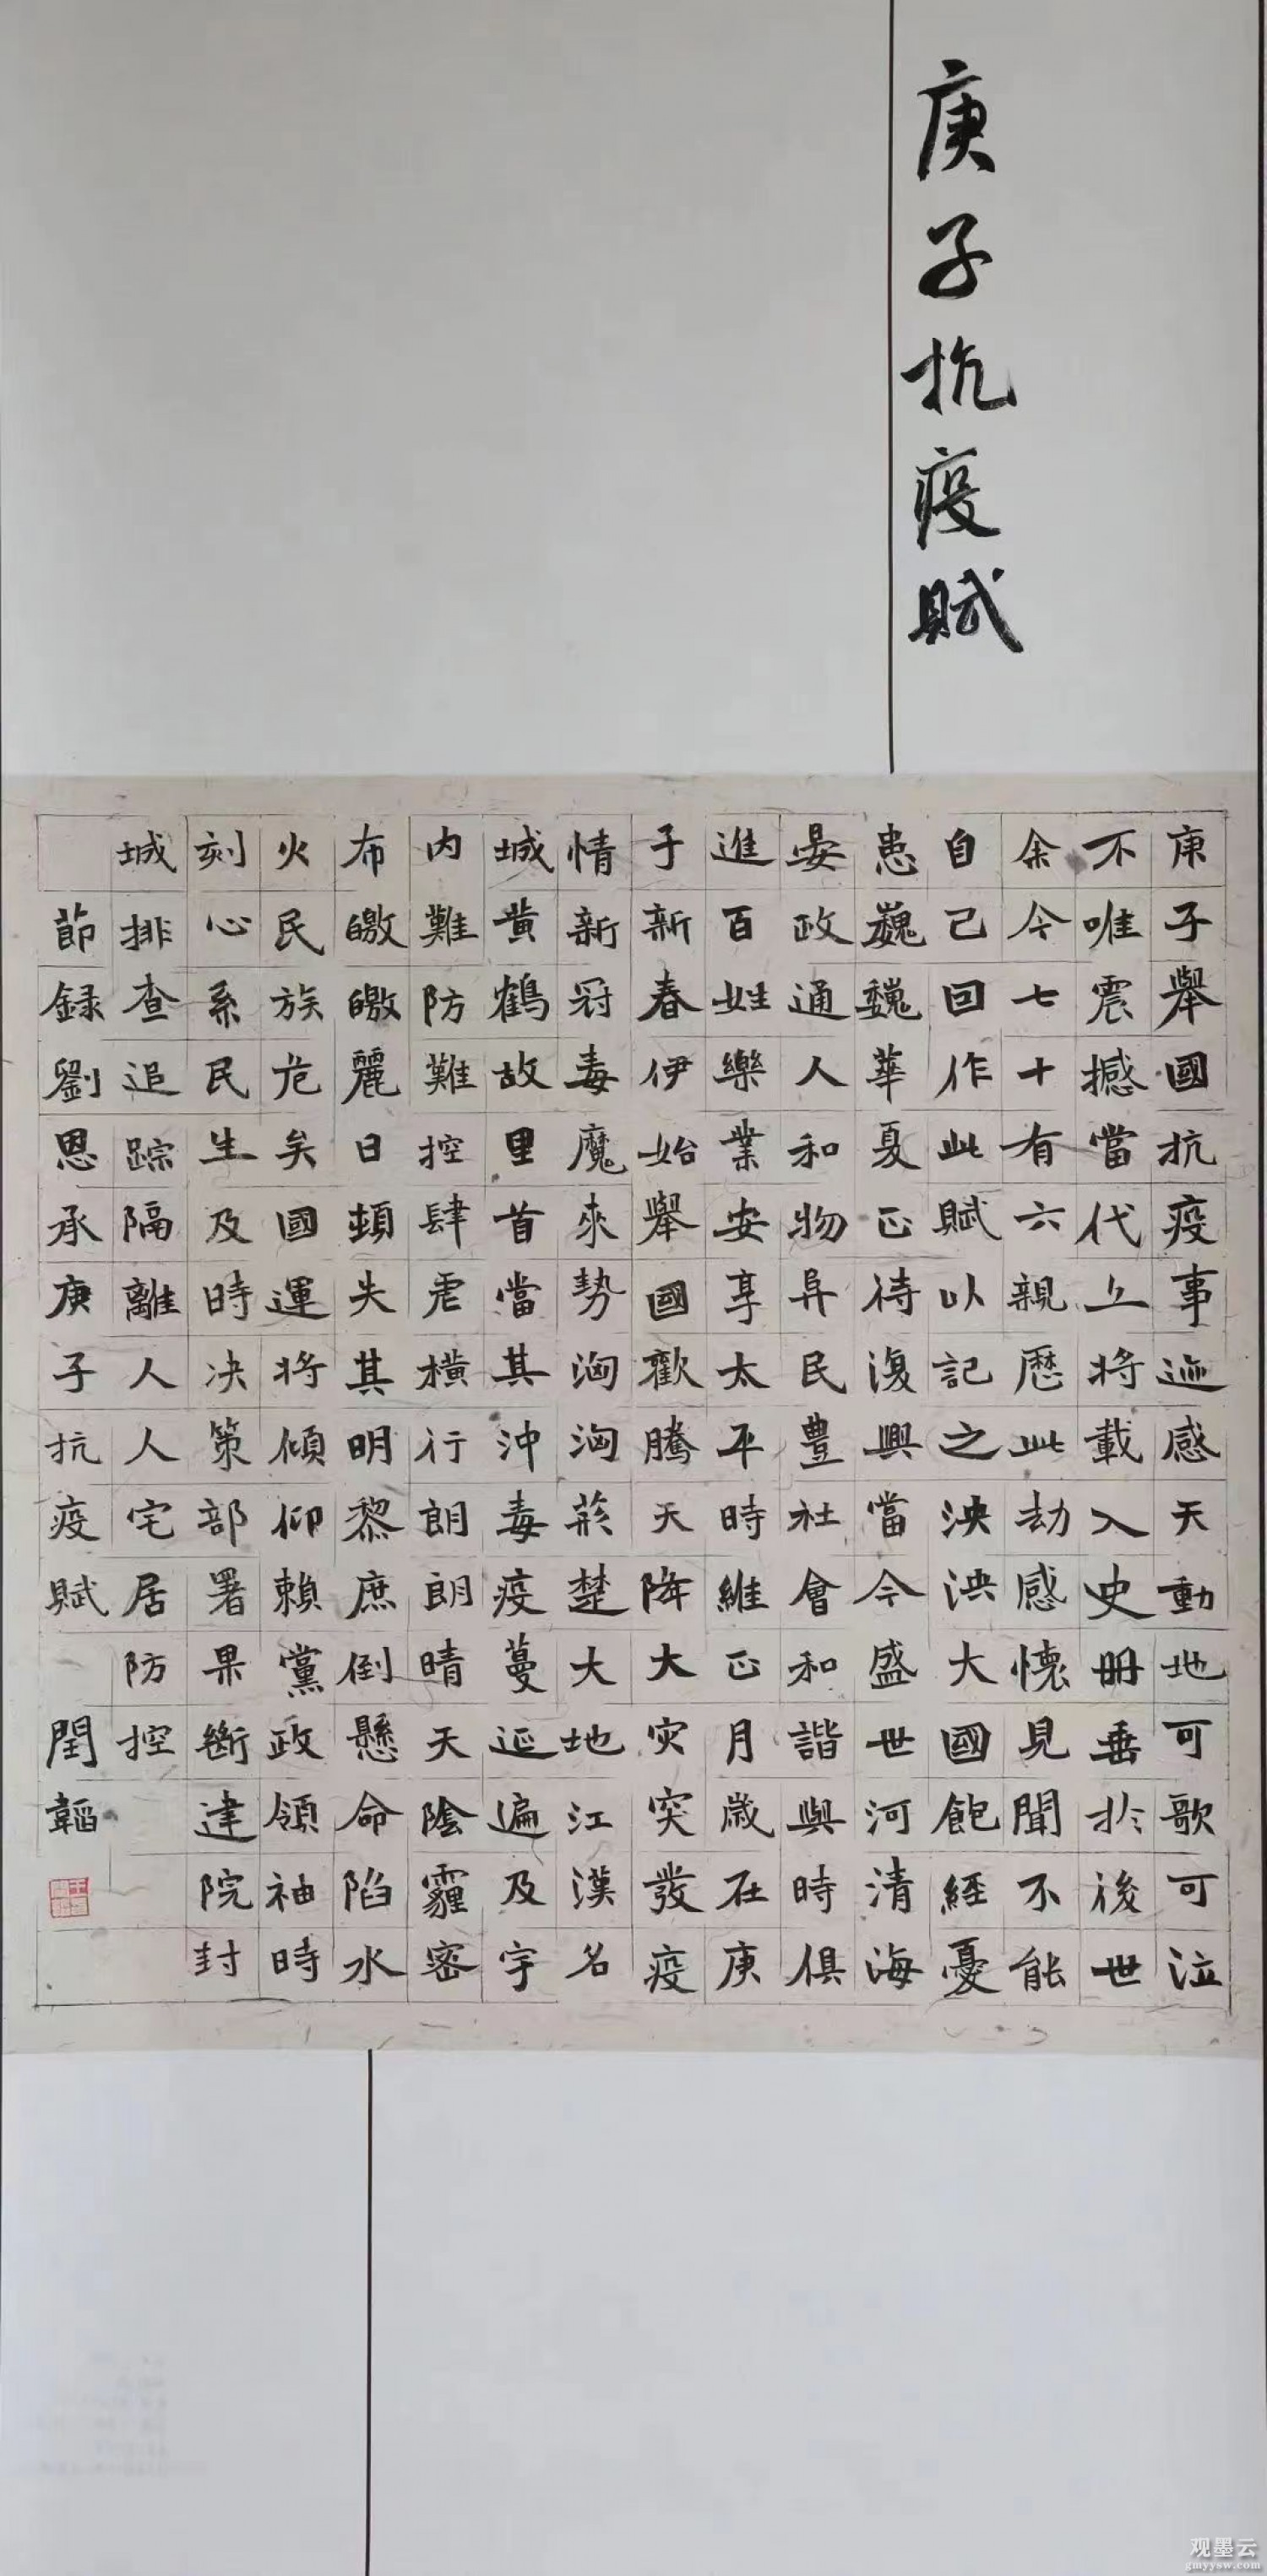 庚子抗疫賦
庚子舉國抗疫事迹感天動地可歌可泣
不唯震撼當代上將載入史冊垂於後世
余今七十有六親歷此劫感懷見聞不能
自己回作此賦以記之泱泱大國飽經憂
患巍巍華夏正待復興當今盛世河清海
晏政通人和物阜民豐社會和諧與時俱
進百姓樂業安享太平時維正月歲在庚
子新春伊始舉國歡騰天降大灾突發疫
情新冠毒魔來勢洶洶荊楚大地江漢名
城黄鶴故里首當其沖毒疫蔓延遍及宇
内難防難控肆虐橫行朗朗晴天陰霾密
布皦皦麗日頓失其明黎庶倒懸命陷水
火民族危矣國運將傾仰賴黨政領袖時
刻心系民生及時决策部署果斷建院封
城排查追踪隔離人人宅居防控
節録劉恩承庚子抗疫賦 閏韜
观墨云
gmyysw.com